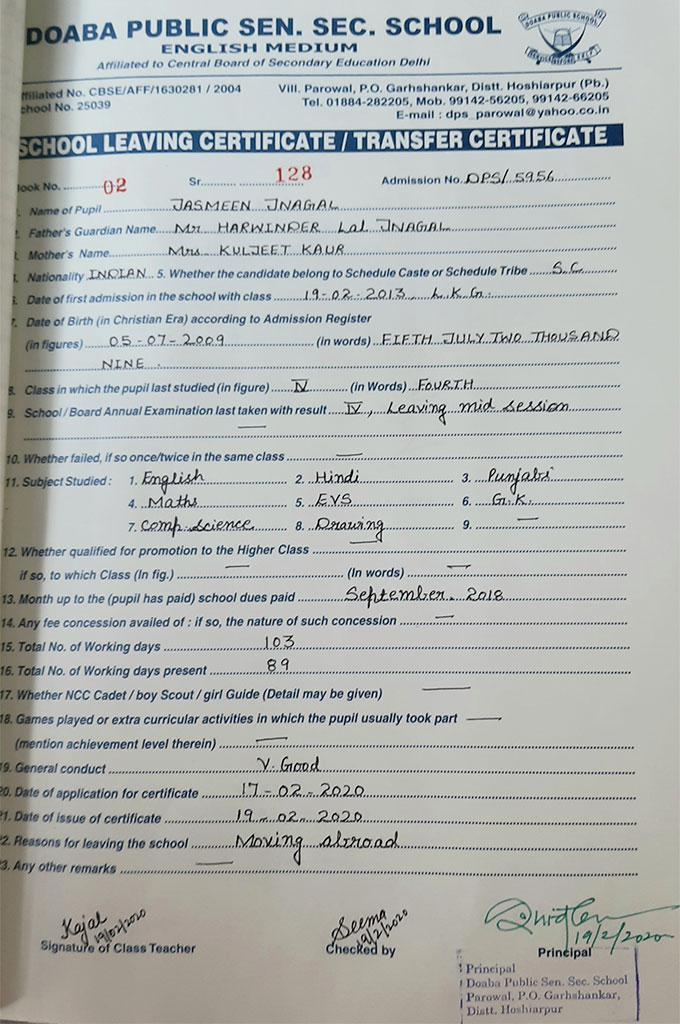 DOABA PUBLIC SEN. SEC. SCHOOL
ENGLISH MEDIUM
Affiliated to Central Board of Secondary Education Delhi
DOABA PUBLIC SCHOOL
ffiliated No. CBSE/AFF/1630281 / 2004
Vill. Parowal, P.O. Garhshankar, Distt. Hoshiarpur (Pb.)
chool No. 25039
Tel. 01884-282205, Mob. 99142-56205, 99142-66205
E-mail : dps_parowal@yahoo.co.in
SCHOOL LEAVING CERTIFICATE / TRANSFER CERTIFICATE
ook No. 02 Sr. 128 Admission No. DPS/5956
Name of Pupil JASMEEN JNAGAL
Father's Guardian Name Mr. HARWINDER Lal JNAGAL
Mother's Name Mrs. KULJEET KAUR
Nationality INDIAN 5. Whether the candidate belong to Schedule Caste or Schedule Tribe S.C
Date of first admission in the school with class 19-02-2013, L.K.G.
7. Date of Birth (in Christian Era) according to Admission Register
(in figures) 05-07-2009 (in words) FIFTH JULY TWO THOUSAND
NINE.
8. Class in which the pupil last studied (in figure) IV (in Words) FOURTH
9. School / Board Annual Examination last taken with result IV, Leaving mid session
—
10. Whether failed, if so once/twice in the same class —
11. Subject Studied : 1. English 2. Hindi 3. Punjabi
4. Maths 5. EVS 6. G.K.
7. Comp. science 8. Drawing 9. —
12. Whether qualified for promotion to the Higher Class —
if so, to which Class (In fig.) — (In words) —
13. Month up to the (pupil has paid) school dues paid September. 2018
14. Any fee concession availed of : if so, the nature of such concession —
15. Total No. of Working days 103
16. Total No. of Working days present 89
17. Whether NCC Cadet / boy Scout / girl Guide (Detail may be given) —
18. Games played or extra curricular activities in which the pupil usually took part —
(mention achievement level therein) —
19. General conduct V. Good
20. Date of application for certificate 17-02-2020
21. Date of issue of certificate 19-02-2020
2. Reasons for leaving the school Moving abroad
3. Any other remarks —
Kajal 19/02/2020
Seema 19/2/2020
19/2/2020
Signature of Class Teacher
Checked by
Principal
Principal
Doaba Public Sen. Sec. School
Parowal, P.O. Garhshankar,
Distt. Hoshiarpur